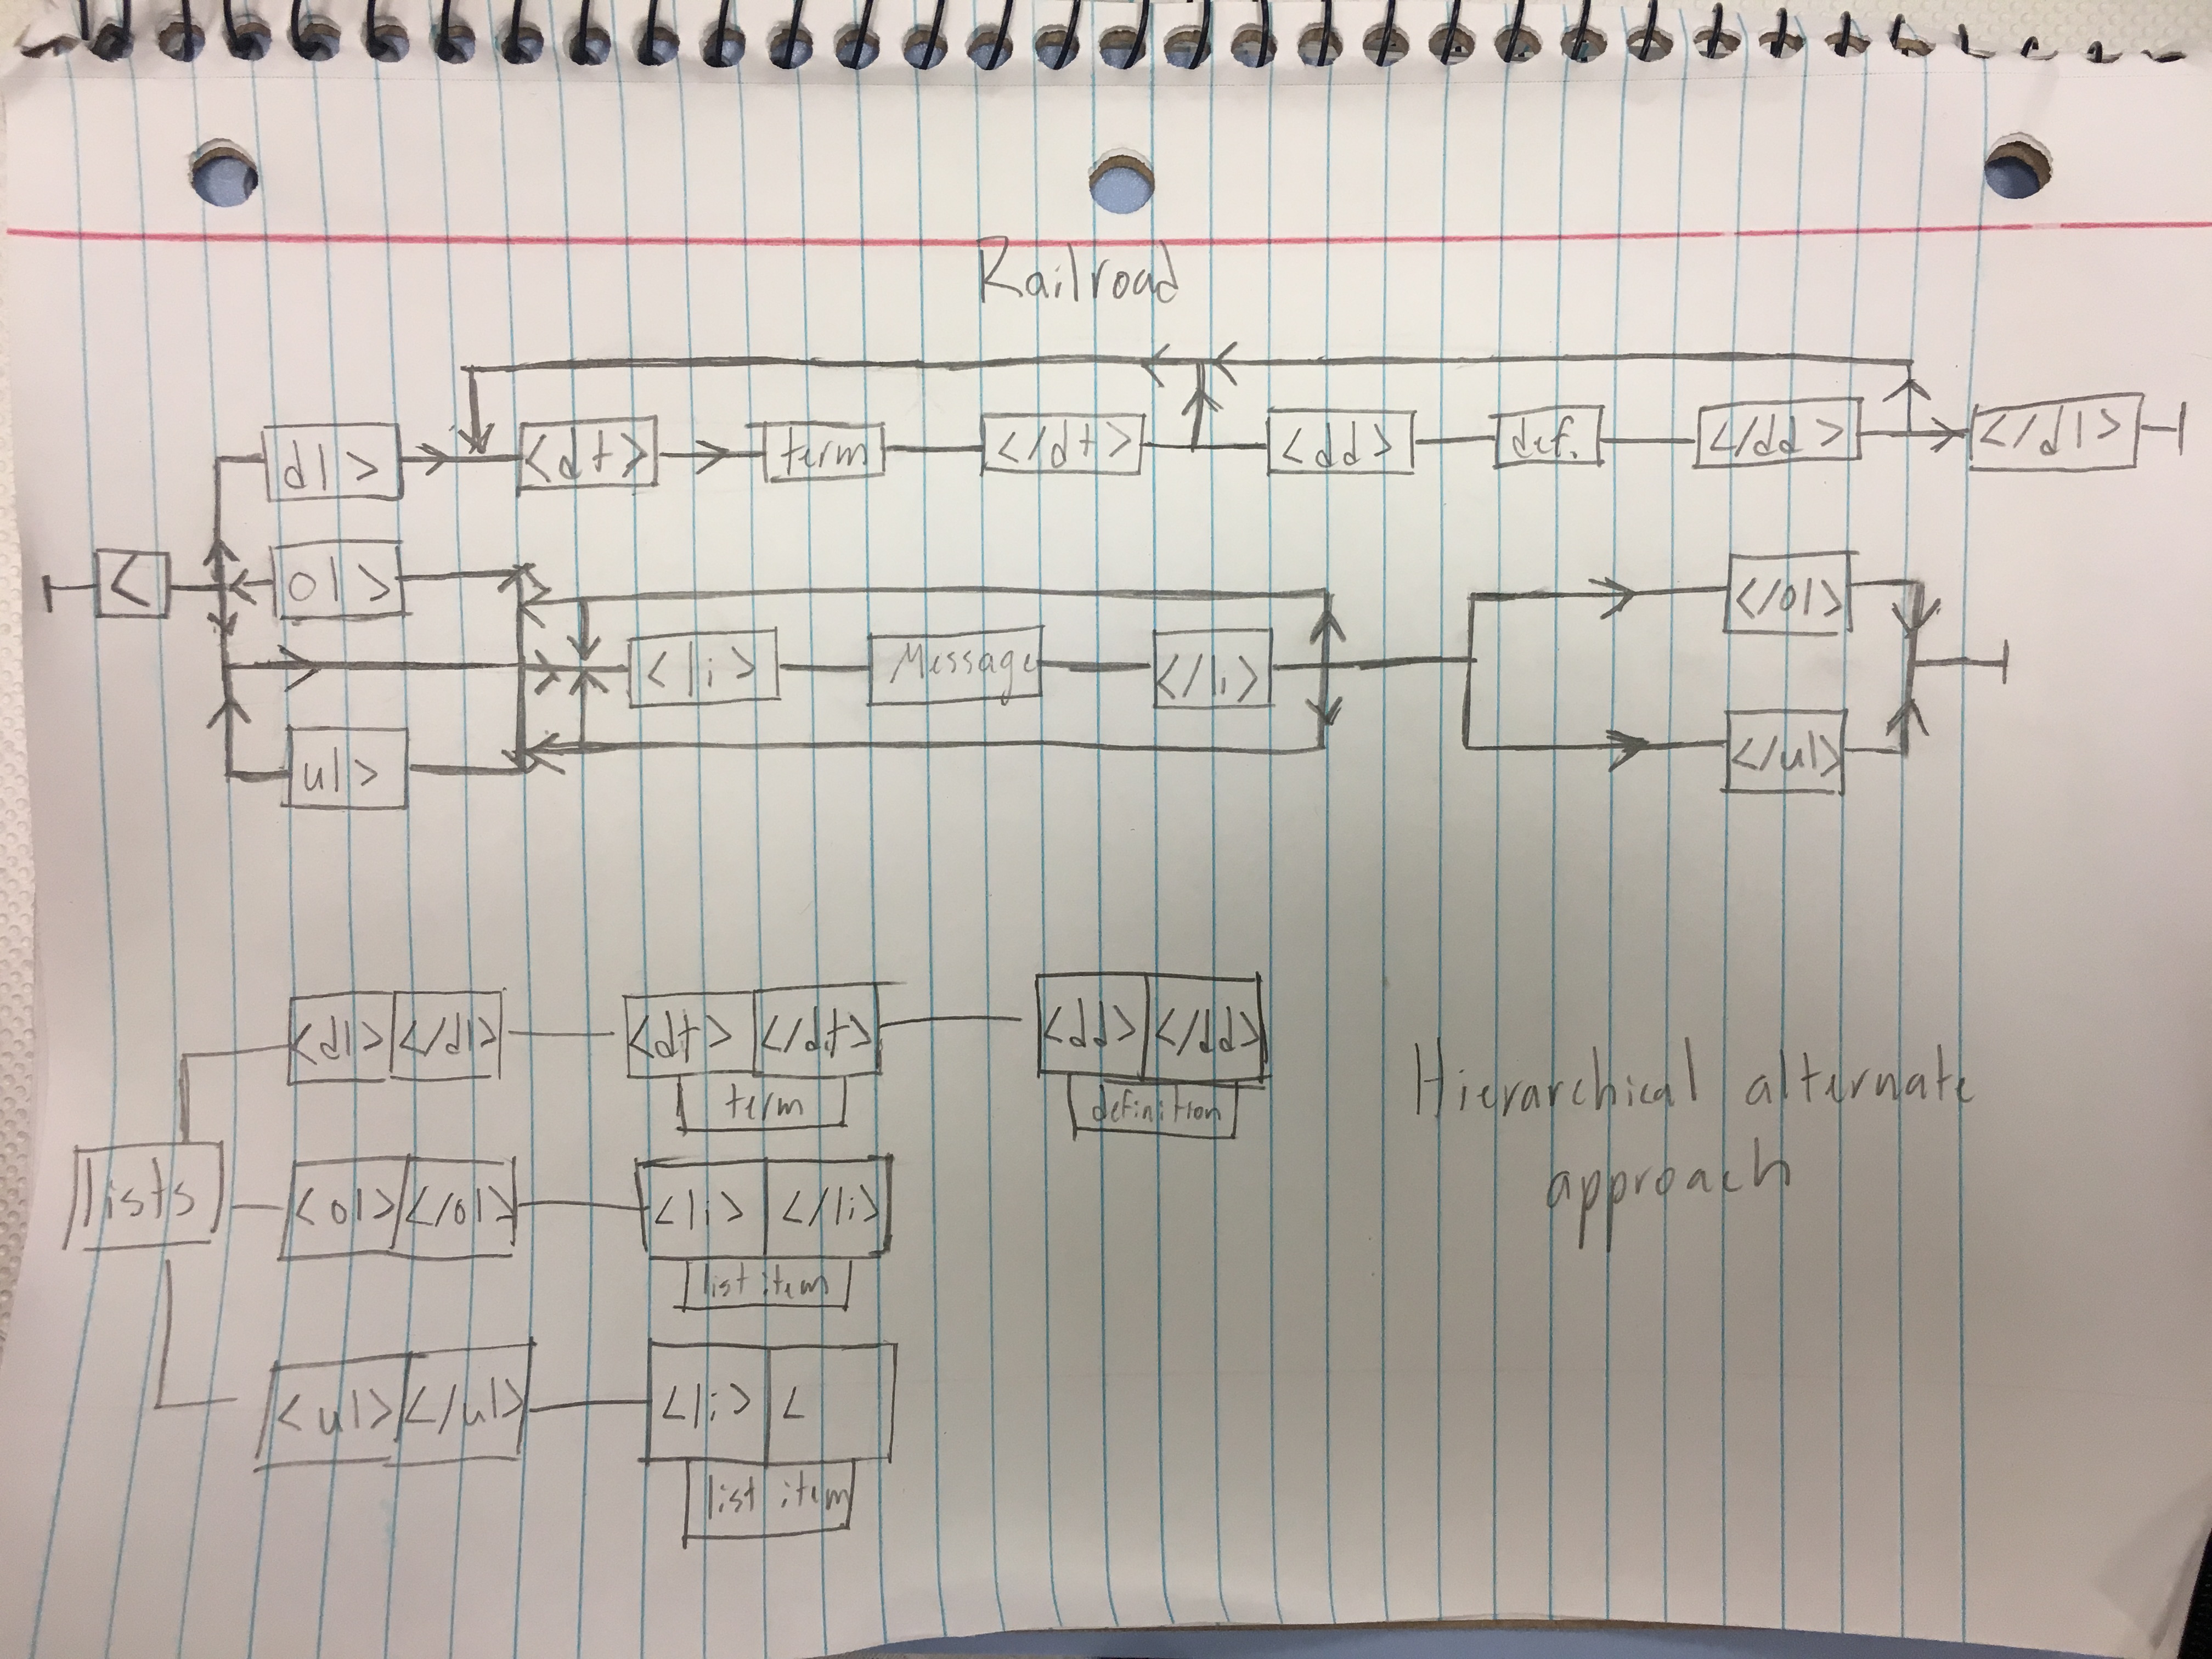 Railroad
dl> <dt> term </dt> <dd> def. </dd> </dl>
<
ol> </ol>
<li> Message </li>
ul> </ul>
<dl> </dl> <dt> </dt> <dd> </dd>
term definition
lists <ol> </ol> <li> </li>
list item
<ul> </ul> <li> <
list item
Hierarchical alternate
approach